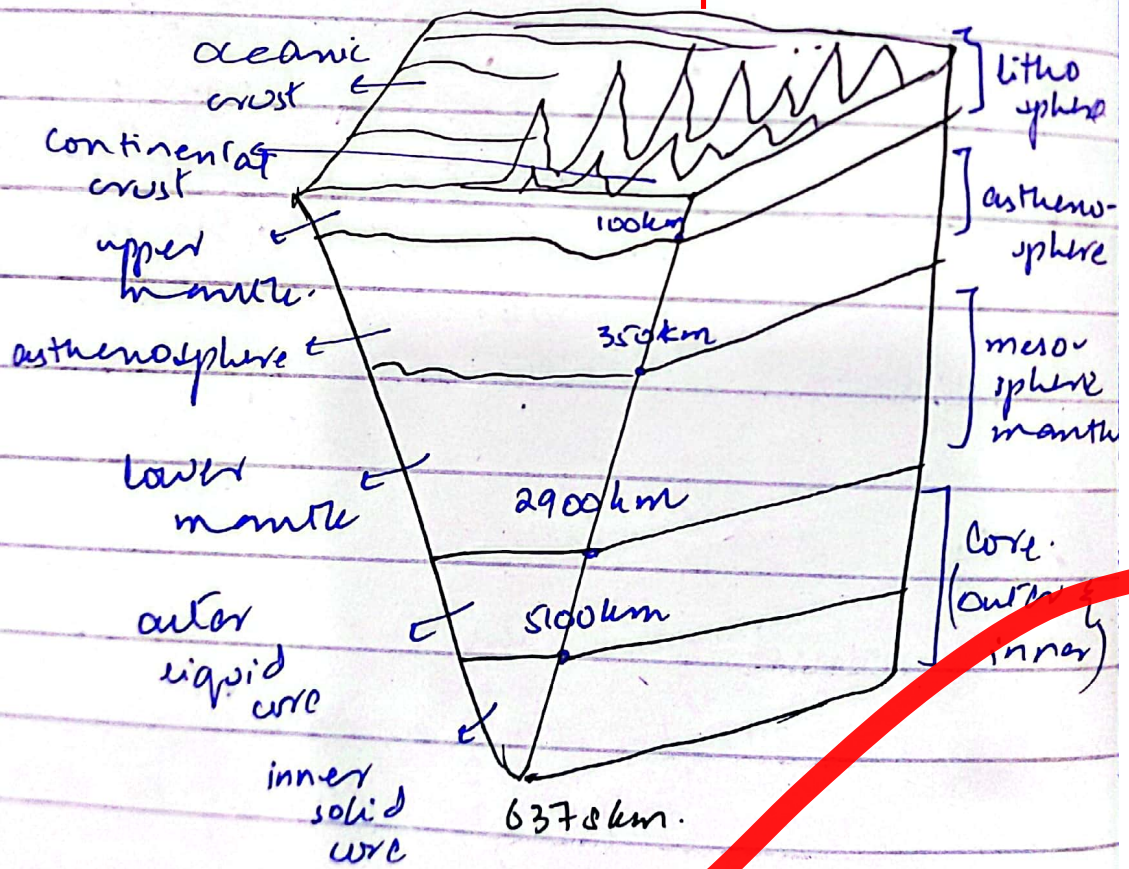 oceanic
crust
continental
crust
upper
mantle.
asthenosphere
lower
mantle
outer
liquid
core
inner
solid
core
100km
350km
2900km
5100km
6378km.
litho
sphere
astheno-
sphere
meso-
sphere
mantle
Core.
(outer &
inner)